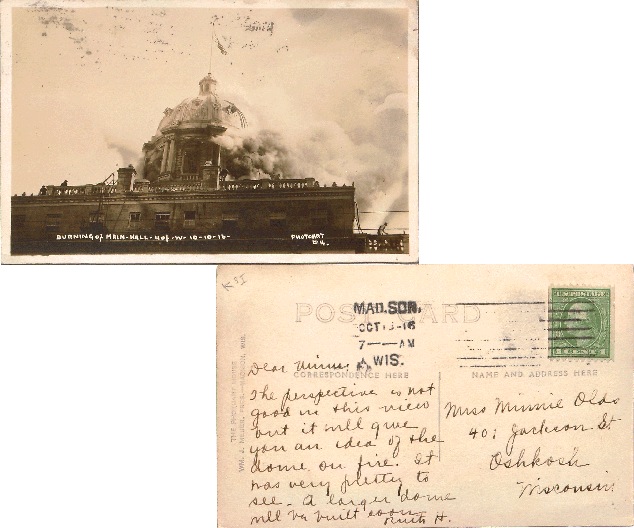 BURNING of MAIN-HALL-U of-W-10-10-16-
PHOTOART
K51
POST CARD
MADISON,
OCT 13-16
7 — AM
WIS.
CORRESPONDENCE HERE
NAME AND ADDRESS HERE
Dear Minnie:
The perspective is not
good in this view
but it will give
you an idea of the
dome on fire. It
was very pretty to
see. A larger dome
will be built soon.
Ruth H.
Miss Minnie Olds
401 Jackson St
Oshkosh
Wisconsin